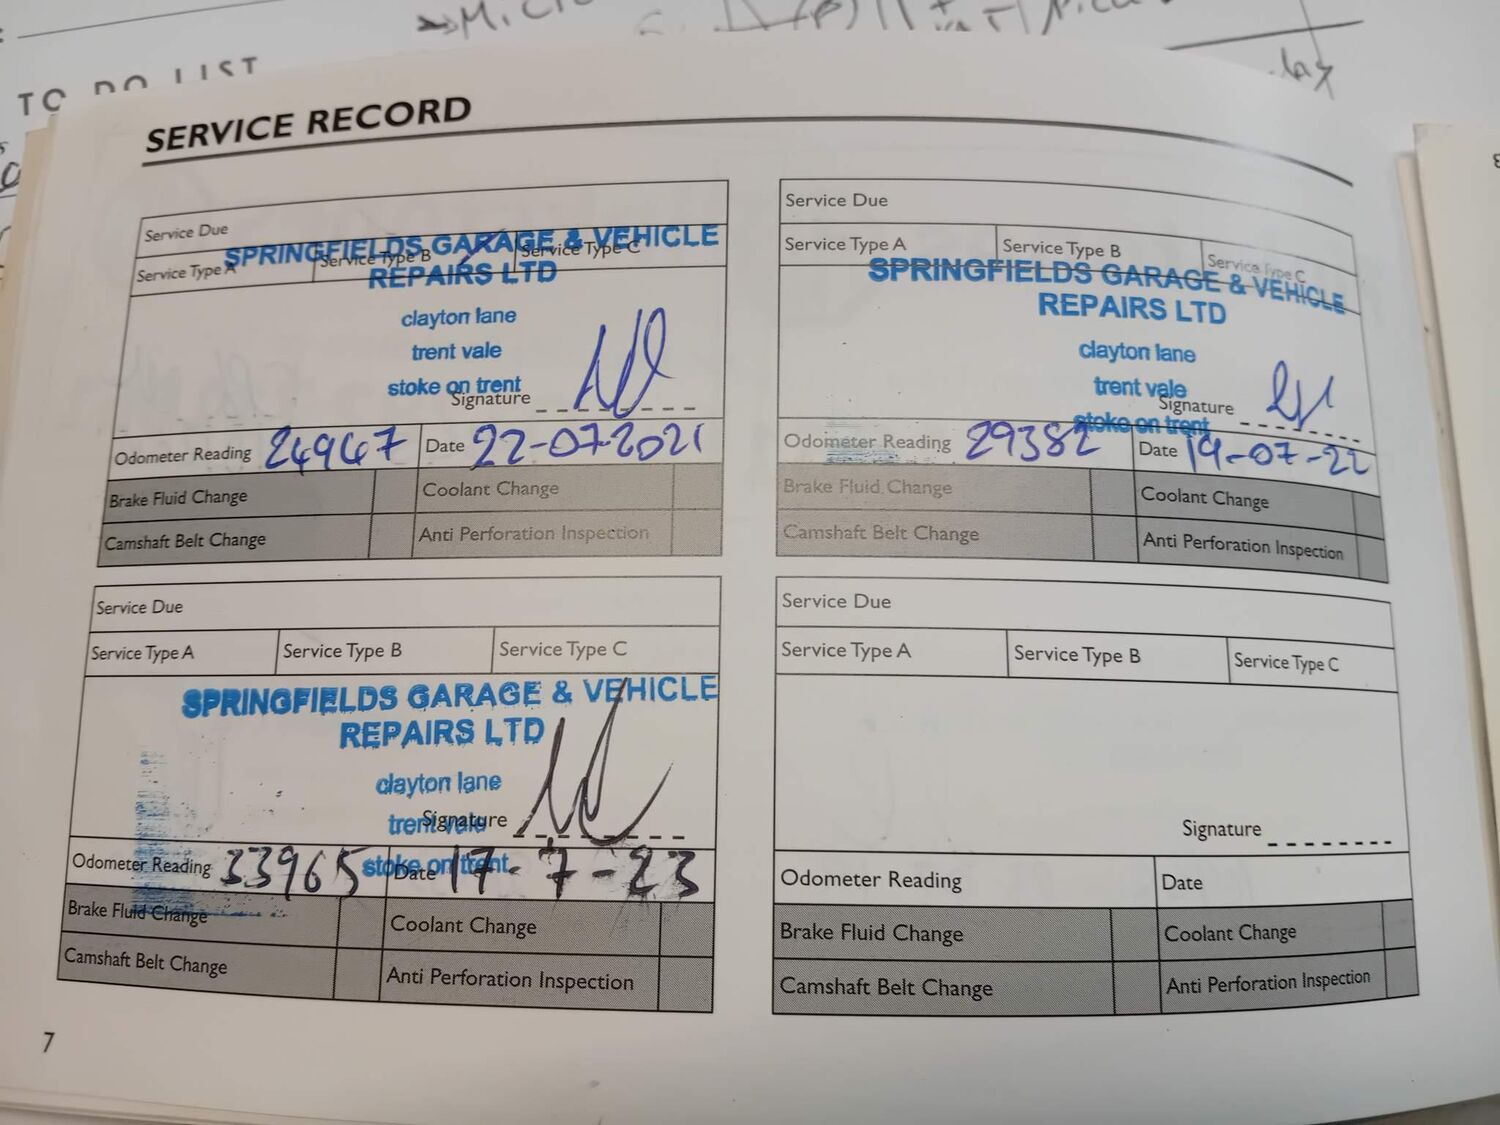 TO DO LIST
SERVICE RECORD
Service Due
Service Type A Service Type B Service Type C
SPRINGFIELDS GARAGE & VEHICLE
REPAIRS LTD
clayton lane
trent vale
stoke on trent
Signature
Odometer Reading 24967 Date 22-07-2021
Brake Fluid Change Coolant Change
Camshaft Belt Change Anti Perforation Inspection
Service Due
Service Type A Service Type B Service Type C
SPRINGFIELDS GARAGE & VEHICLE
REPAIRS LTD
clayton lane
trent vale
Signature
stoke on trent
Odometer Reading 29382 Date 19-07-22
Brake Fluid Change Coolant Change
Camshaft Belt Change Anti Perforation Inspection
Service Due
Service Type A Service Type B Service Type C
SPRINGFIELDS GARAGE & VEHICLE
REPAIRS LTD
clayton lane
trent vale
Signature
stoke on trent
Odometer Reading 33965 Date 17-7-23
Brake Fluid Change Coolant Change
Camshaft Belt Change Anti Perforation Inspection
Service Due
Service Type A Service Type B Service Type C
Signature
Odometer Reading Date
Brake Fluid Change Coolant Change
Camshaft Belt Change Anti Perforation Inspection
7